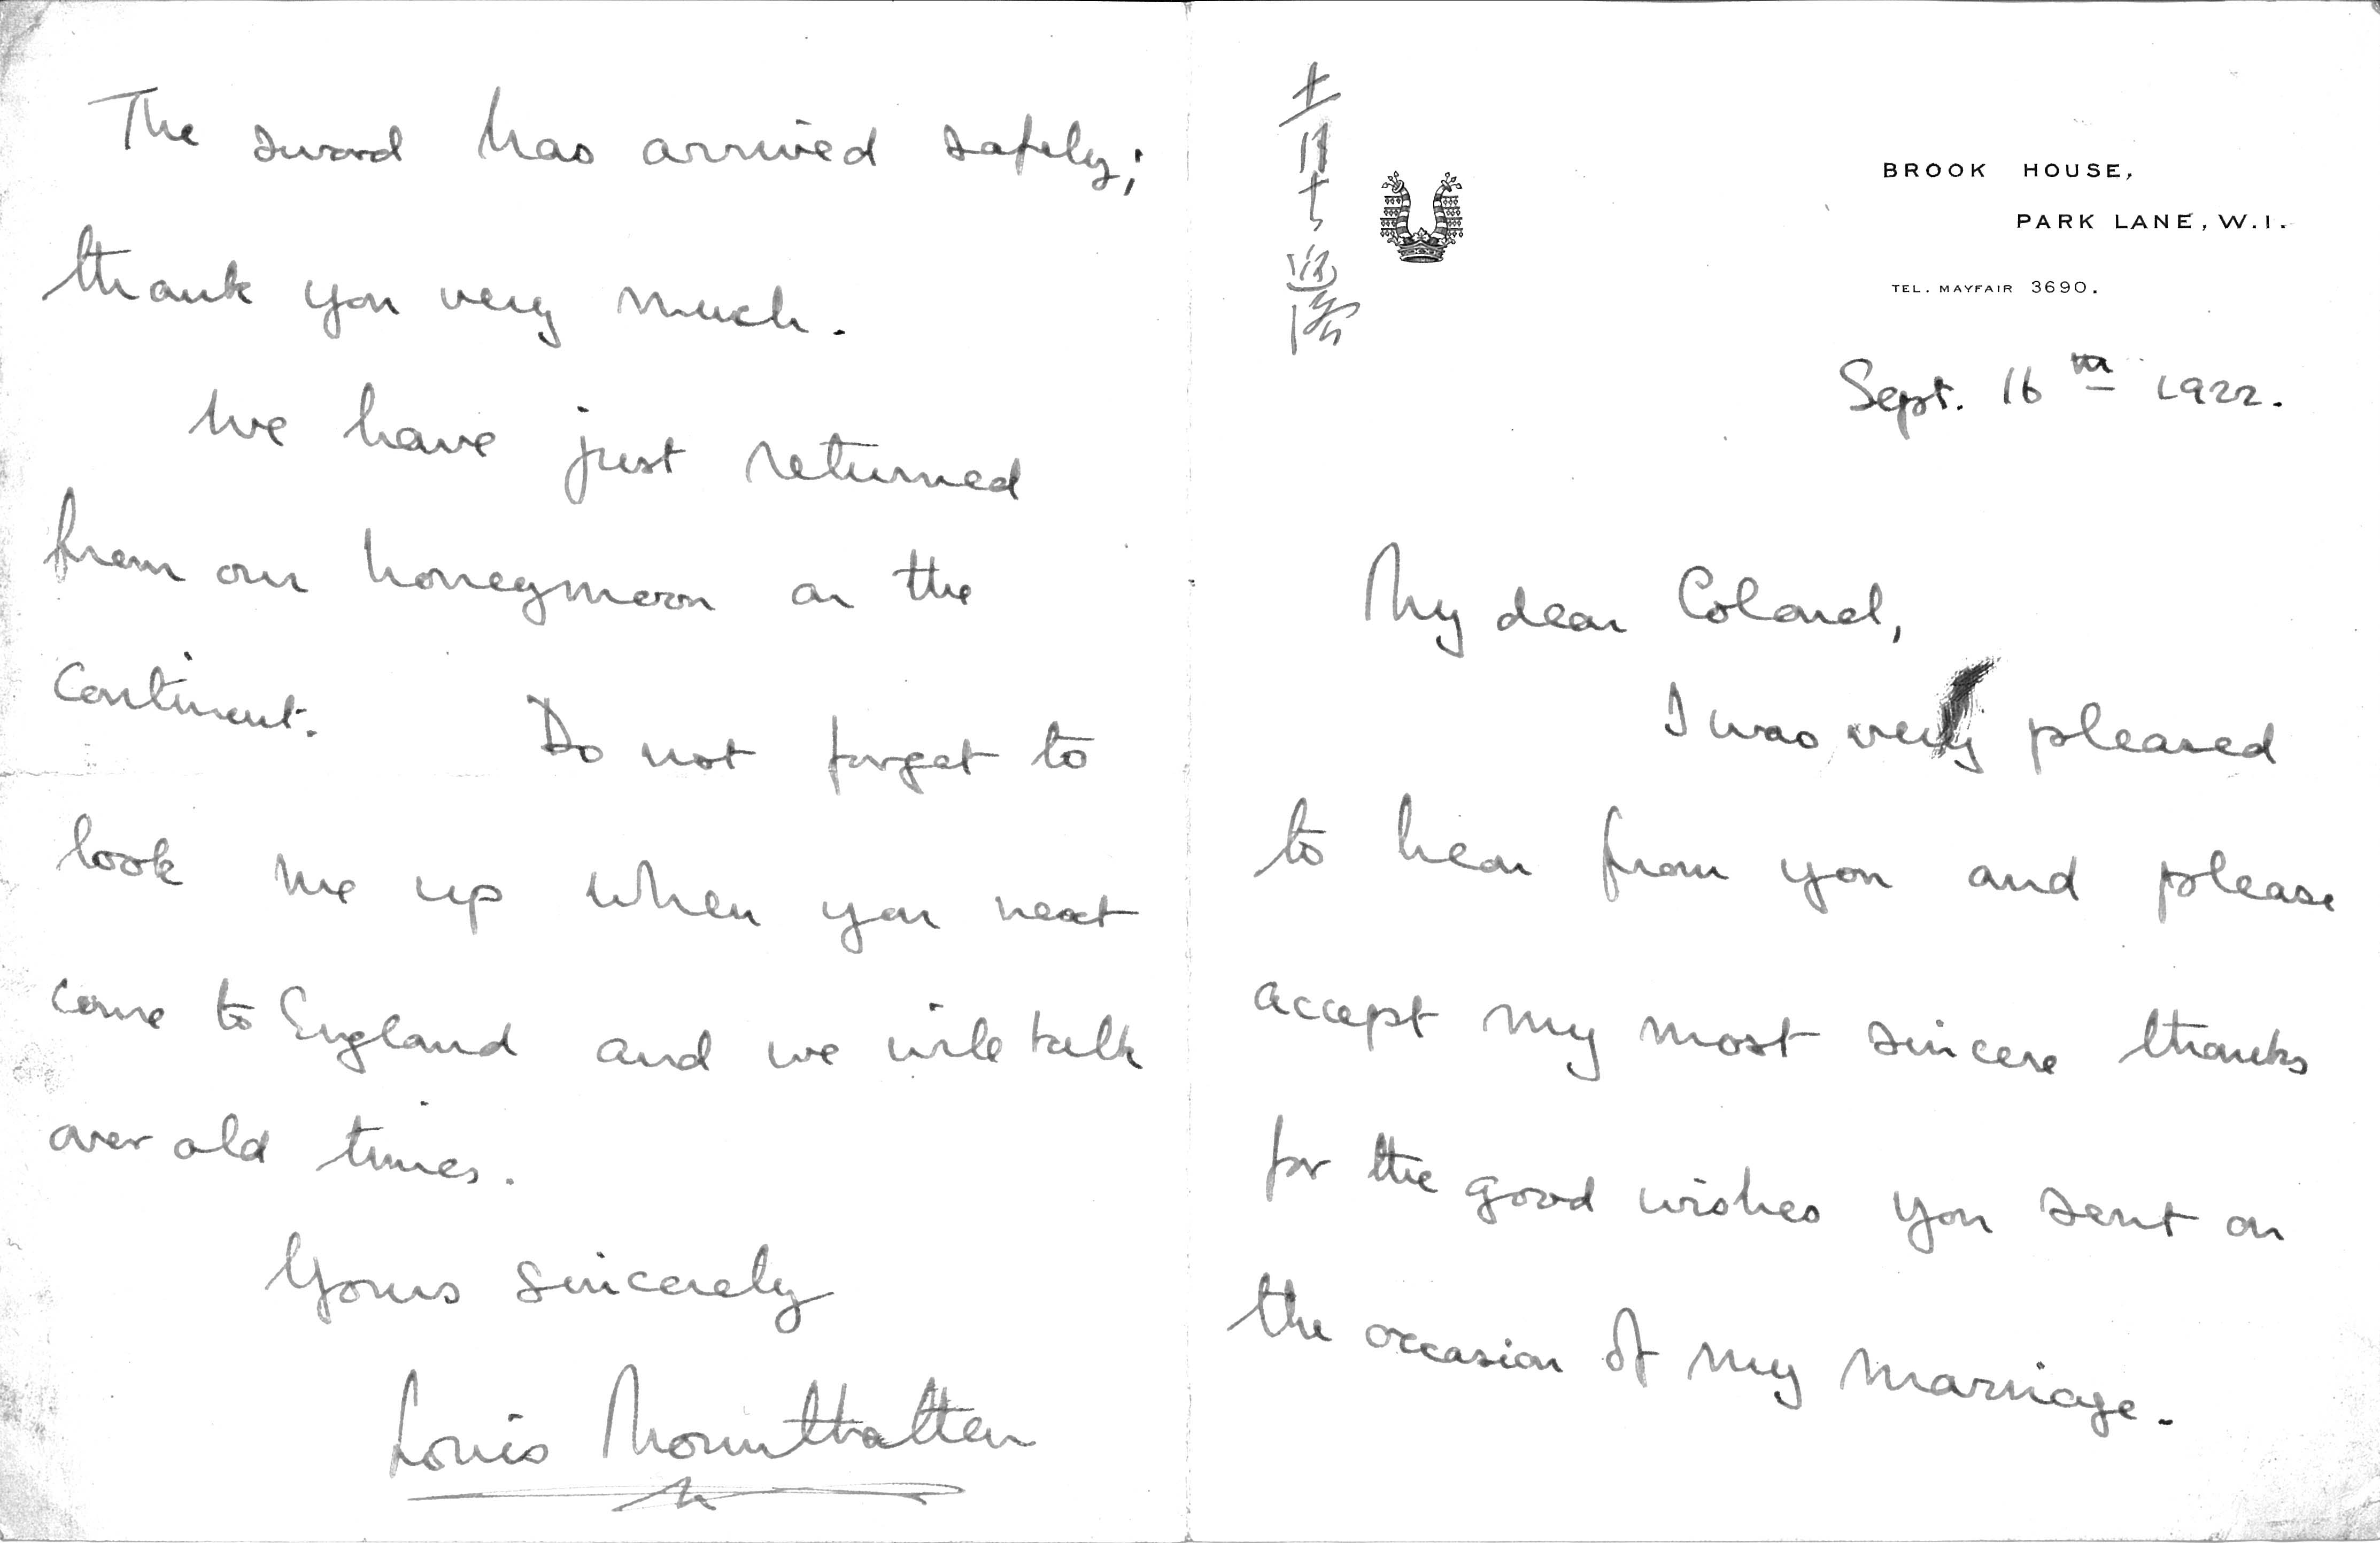 十一月
BROOK HOUSE,
PARK LANE, W.1.
TEL. MAYFAIR 3690.
Sept. 16th 1922.
My dear Colonel,
I was very pleased
to hear from you and please
accept my most sincere thanks
for the good wishes you sent on
the occasion of my marriage.
The sword has arrived safely;
thank you very much.
We have just returned
from our honeymoon on the
Continent. Do not forget to
look me up when you next
come to England and we will talk
over old times.
Yours sincerely
Louis Mountbatten